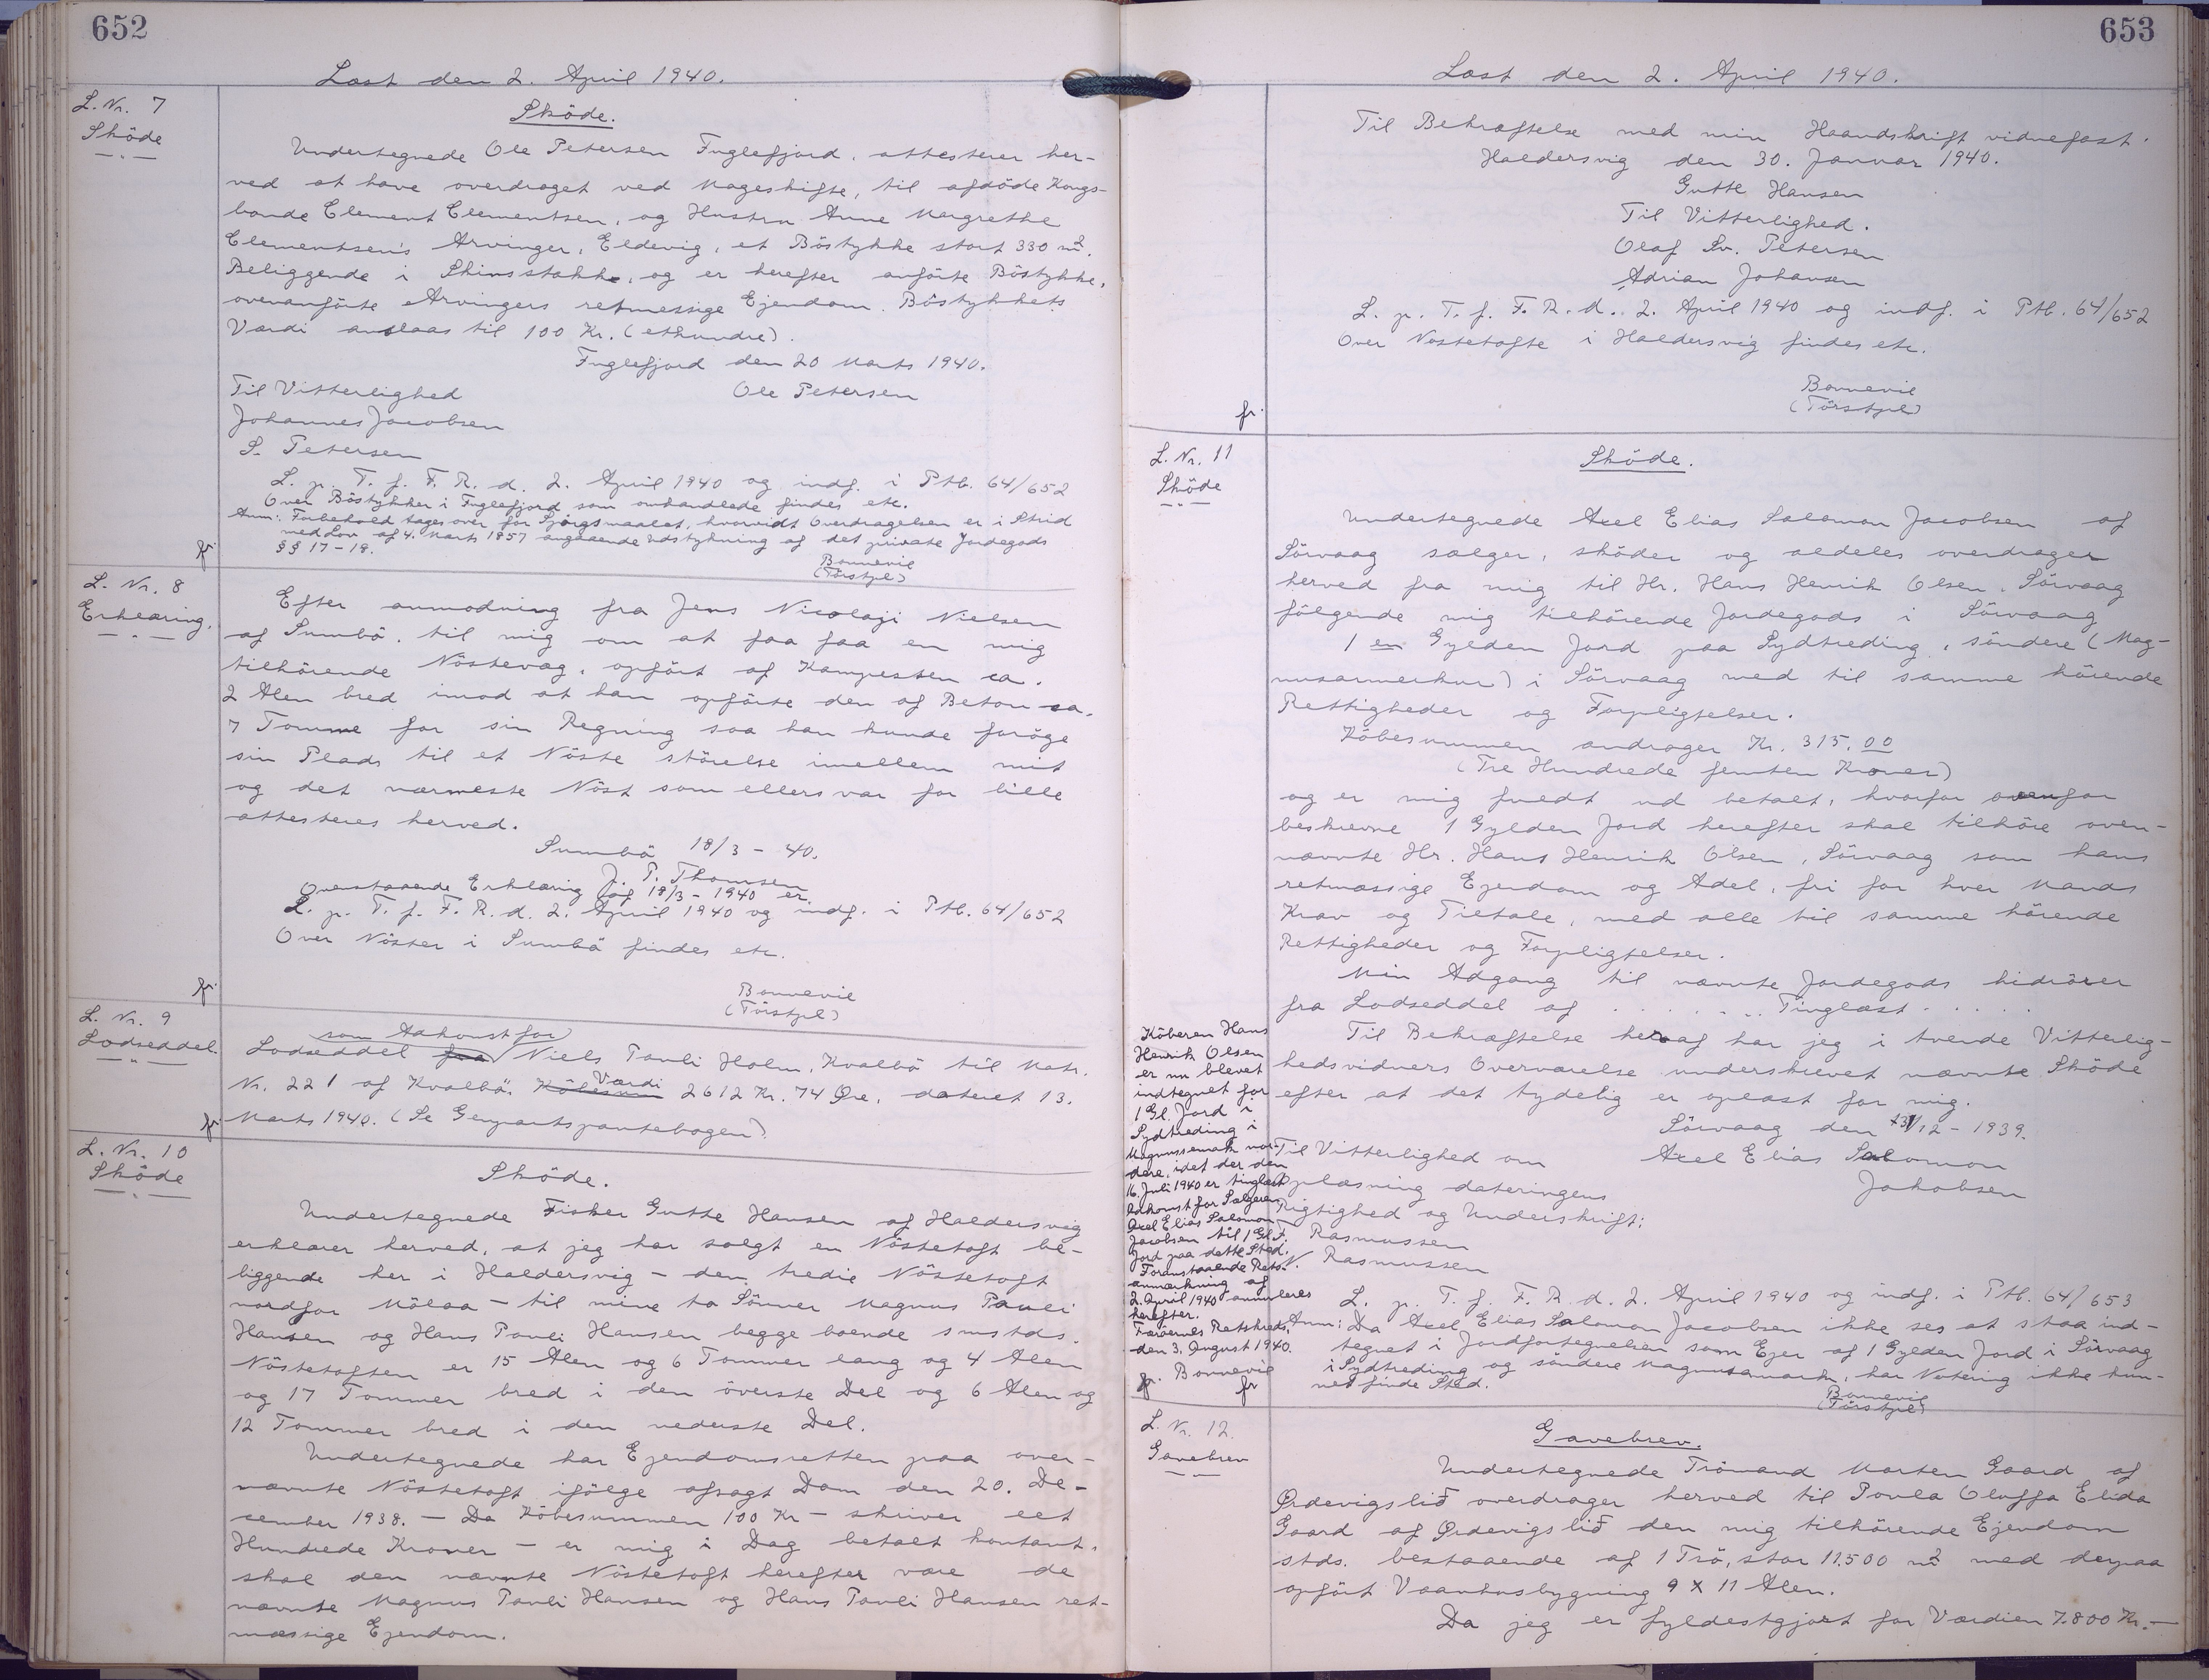 652
Læst den 2. April 1940.
L. Nr. 7
Sköde
Sköde.
Undertegnede Ole Petersen Fuglefjord, attesterer her-
ved at have overdraget ved Mageskifte, til afdöde Kongs-
bonde Clement Clementsen, og Hustru Anne Margrethe
Clementsen's Arvinger, Eldevig, et Böstykke stort 330 m².
Beliggende i Skinsstakke, og er herefter anförte Böstykke,
ovenanförte Arvingers retmessige Ejendom. Böstykkets
Værdi anslaas til 100 Kr. (ethundre).
Fuglefjord den 20 Marts 1940.
Til Vitterlighed Ole Petersen
Johannes Jacobsen
S. Petersen
L. p. T. f. F. R. d. 2. April 1940 og indf. i Ptb. 64/652
Over Böstykker i Fuglefjord som omhandlede findes etc.
Anm: Forbehold tages over for Spörgsmaalet, hvorvidt Overdragelsen er i Strid
med Lov af 4. Marts 1857 angaaende Udstykning af det private Jordegods
§§ 17-18.
Bonnevie
(Törstpl)
fr.
L. Nr. 8
Erklæring.
Efter anmodning fra Jens Nicolaji Nielsen
af Sumbö, til mig om at faa faa en mig
tilhörende Nöstevæg, opfört af Kampesten ca.
2 Alen bred imod at han opförte den af Beton ca.
7 Tomme for sin Regning saa han kunde foröge
sin Plads til et Nöste störelse imellem mit
og det nærmeste Nöst som ellers var for lille
attesteres herved.
Sumbö 18/3 - 40.
J. P. Thomsen
Ovenstaaende Erklæring af 18/3 - 1940 er
L. p. T. f. F. R. d. 2. April 1940 og indf. i Ptb. 64/652
Over Nöster i Sumbö findes etc.
Bonnevie
(Törstpl)
fr.
L. Nr. 9
Lodseddel.
som Adkomst for
Lodseddel fra Niels Pauli Holm, Kvalbö til Matr.
Nr. 221 af Kvalbö. Köbesum Værdi 2612 Kr. 74 Øre, dateret 13.
Marts 1940. (Se Genpartspantebogen).
fr.
L. Nr. 10
Sköde
Sköde.
Undertegnede Fisker Gutte Hansen af Haldersvig
erklærer herved, at jeg har solgt en Nöstetoft be-
liggende her i Haldersvig - den tredie Nöstetoft
nordfor Mölaa - til mine to Sönner Magnus Pauli
Hansen og Hans Pauli Hansen begge boende smstds.
Nöstetoften er 15 Alen og 6 Tommer lang og 4 Alen
og 17 Tommer bred i den överste Del og 6 Alen og
12 Tommer bred i den nederste Del.
Undertegnede har Ejendomsretten paa over-
nævnte Nöstetoft ifölge afsagt Dom den 20. De-
cember 1938. - Da Köbesummen 100 Kr - skriver eet
Hundrede Kroner - er mig i Dag betalt kontant,
skal den nævnte Nöstetoft herefter være de
nævnte Magnus Pauli Hansen og Hans Pauli Hansen ret-
mæssige Ejendom.
653
Læst den 2. April 1940.
Til Bekræftelse med min Haandskrift vidnefast.
Haldersvig den 30. Januar 1940.
Gutte Hansen
Til Vitterlighed.
Olaf Sv. Petersen
Adrian Johansen
L. p. T. f. F. R. d. 2. April 1940 og indf. i Ptb. 64/652
Over Nöstetofte i Haldersvig findes etc.
Bonnevie
(Törstpl)
fr.
L. Nr. 11
Sköde
Sköde.
Undertegnede Axel Elias Salomon Jacobsen af
Sörvaag sælger, sköder og aldeles overdrager
herved fra mig til Hr. Hans Henrik Olsen, Sörvaag
fölgende mig tilhörende Jordegods i Sörvaag
1 en Gylden Jord paa Sydtreding, söndere (Mag-
nusarmerkur) i Sörvaag med til samme hörende
Rettigheder og Forpligtelser.
Köbesummen andrager Kr. 315.00
(Tre Hundrede femten Kroner)
og er mig fuldt ud betalt, hvorfor ovenfor
beskrevne 1 Gylden Jord herefter skal tilhöre oven-
nævnte Hr. Hans Henrik Olsen, Sörvaag som hans
retmæssige Ejendom og Adel, fri for hver Mands
Krav og Tiltale, med alle til samme hörende
Rettigheder og Forpligtelser.
Min Adgang til nævnte Jordegods hidrörer
fra Lodseddel af . . . . . . . Tinglæst . . . . .
Til Bekræftelse heraf har jeg i tvende Vitterlig-
hedsvidners Overværelse underskrevet nævnte Sköde
efter at det tydelig er oplæst for mig.
Sörvaag den 31/12 - 1939.
Til Vitterlighed om Axel Elias Salomon
Oplæsning dateringens Jakobsen
Rigtighed og Underskrift:
F. Rasmussen
N. Rasmussen
L. p. T. f. F. R. d. 2. April 1940 og indf. i Ptb. 64/653
Anm: Da Axel Elias Salomon Jacobsen ikke ses at staa ind-
tegnet i Jordfortegnelsen som Ejer af 1 Gylden Jord i Sörvaag
i Sydtreding og söndere Magnusamark, har Notering ikke kun-
net finde Sted.
Bonnevie
(Törstpl)
Köberen Hans
Henrik Olsen
er nu blevet
indtegnet for
1 Gl. Jord i
Sydtreding i
Magnussemark nor-
dere, idet der den
16. Juli 1940 er tinglæst
Adkomst for Sælgeren
Axel Elias Salomon
Jacobsen til 1 Gl.
Jord paa dette Sted.
Foranstaaende Rets-
anmærkning af
2. April 1940 annulleres
herefter.
Færøernes Retskreds,
den 3. August 1940.
Bonnevie
fr
L. Nr. 12.
Gavebrev
Gavebrev.
Undertegnede Trömand Morten Gaard af
Ørdevigslið overdrager herved til Poula Oluffa Elida
Gaard af Ørdevigslið den mig tilhörende Ejendom
stds. bestaaende af 1 Trö, stor 11.500 m² med derpaa
opfört Vaanhusbygning 9 x 11 Alen.
Da jeg er fyldestgjort for Værdien 7.800 Kr. -